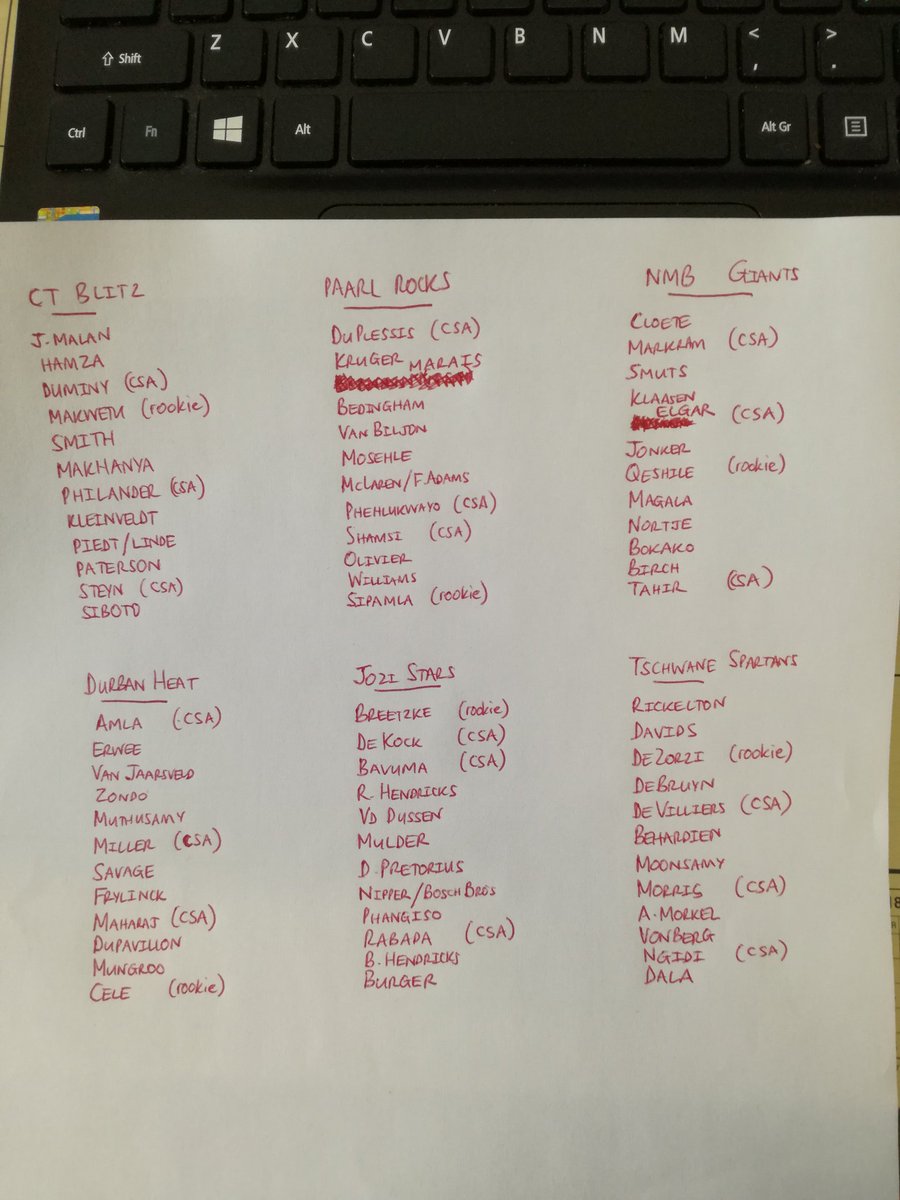 Shift
Z
X
C
V
B
N
M
<
,
>
.
Ctrl
Fn
Alt
Alt Gr
CT BLITZ
J. MALAN
HAMZA
DUMINY (CSA)
MAKWETU (rookie)
SMITH
MAKHANYA
PHILANDER (CSA)
KLEINVELDT
PIEDT/LINDE
PATERSON
STEYN (CSA)
SIBOTO
PAARL ROCKS
DUPLESSIS (CSA)
KRUGER
MARAIS
BEDINGHAM
VAN BILJON
MOSEHLE
MCLAREN/F.ADAMS
PHEHLUKWAYO (CSA)
SHAMSI (CSA)
OLIVIER
WILLIAMS
SIPAMLA (rookie)
NMB GIANTS
CLOETE
MARKRAM (CSA)
SMUTS
KLAASEN
ELGAR (CSA)
JONKER
QESHILE (rookie)
MAGALA
NORTJE
BOKAKO
BIRCH
TAHIR (CSA)
DURBAN HEAT
AMLA (CSA)
ERWEE
VAN JAARSVELD
ZONDO
MUTHUSAMY
MILLER (CSA)
SAVAGE
FRYLINCK
MAHARAJ (CSA)
DUPAVILLON
MUNGROO
CELE (rookie)
JOZI STARS
BREETZKE (rookie)
DE KOCK (CSA)
BAVUMA (CSA)
R. HENDRICKS
VD DUSSEN
MULDER
D. PRETORIUS
NIPPER/BOSCH BROS
PHANGISO
RABADA (CSA)
B. HENDRICKS
BURGER
TSCHWANE SPARTANS
RICKELTON
DAVIDS
DE ZORZI (rookie)
DEBRUYN
DEVILLIERS (CSA)
BEHARDIEN
MOONSAMY
MORRIS (CSA)
A. MORKEL
VONBERG
NGIDI (CSA)
DALA